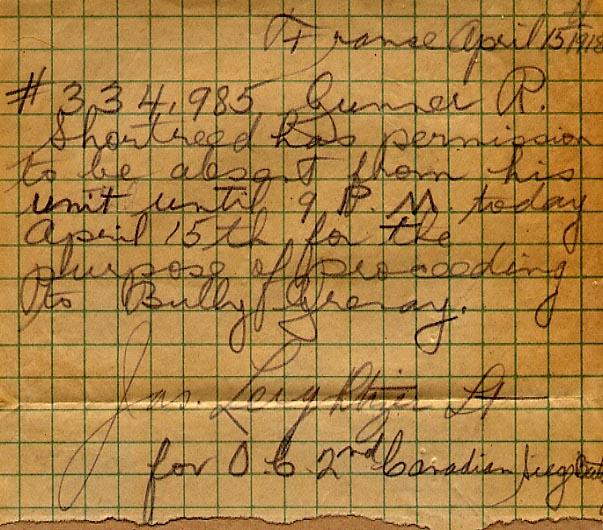 France April 15th/1918
# 334,985 Gunner R.
Shortreed has permission
to be absent from his
unit until 9 P.M. today
April 15th for the
purpose of proceeding
to Bully Grenay.
Jas. Lt
for O.C. 2nd Canadian Siege Baty